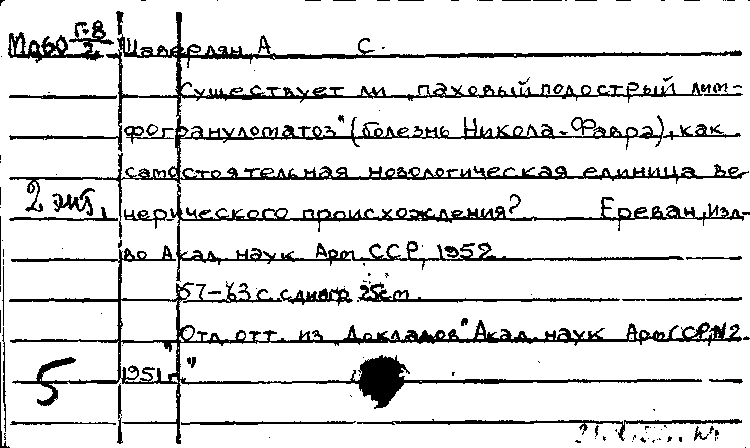 Мд60 Г-8/2 Шаверлян, А С.
Существует ли „паховый подострый лим-
фогрануломатоз" (болезнь Никола-Фавра), как
самостоятельная нозологическая единица ве-
2 экз., нерического происхождения? Ереван, Изд-
во Акад. наук Арм ССР, 1952.
57-63 с. с диагр. 25см.
Отд. отт. из „Докладов" Акад. наук Арм ССР, №2.
5 1951 г."